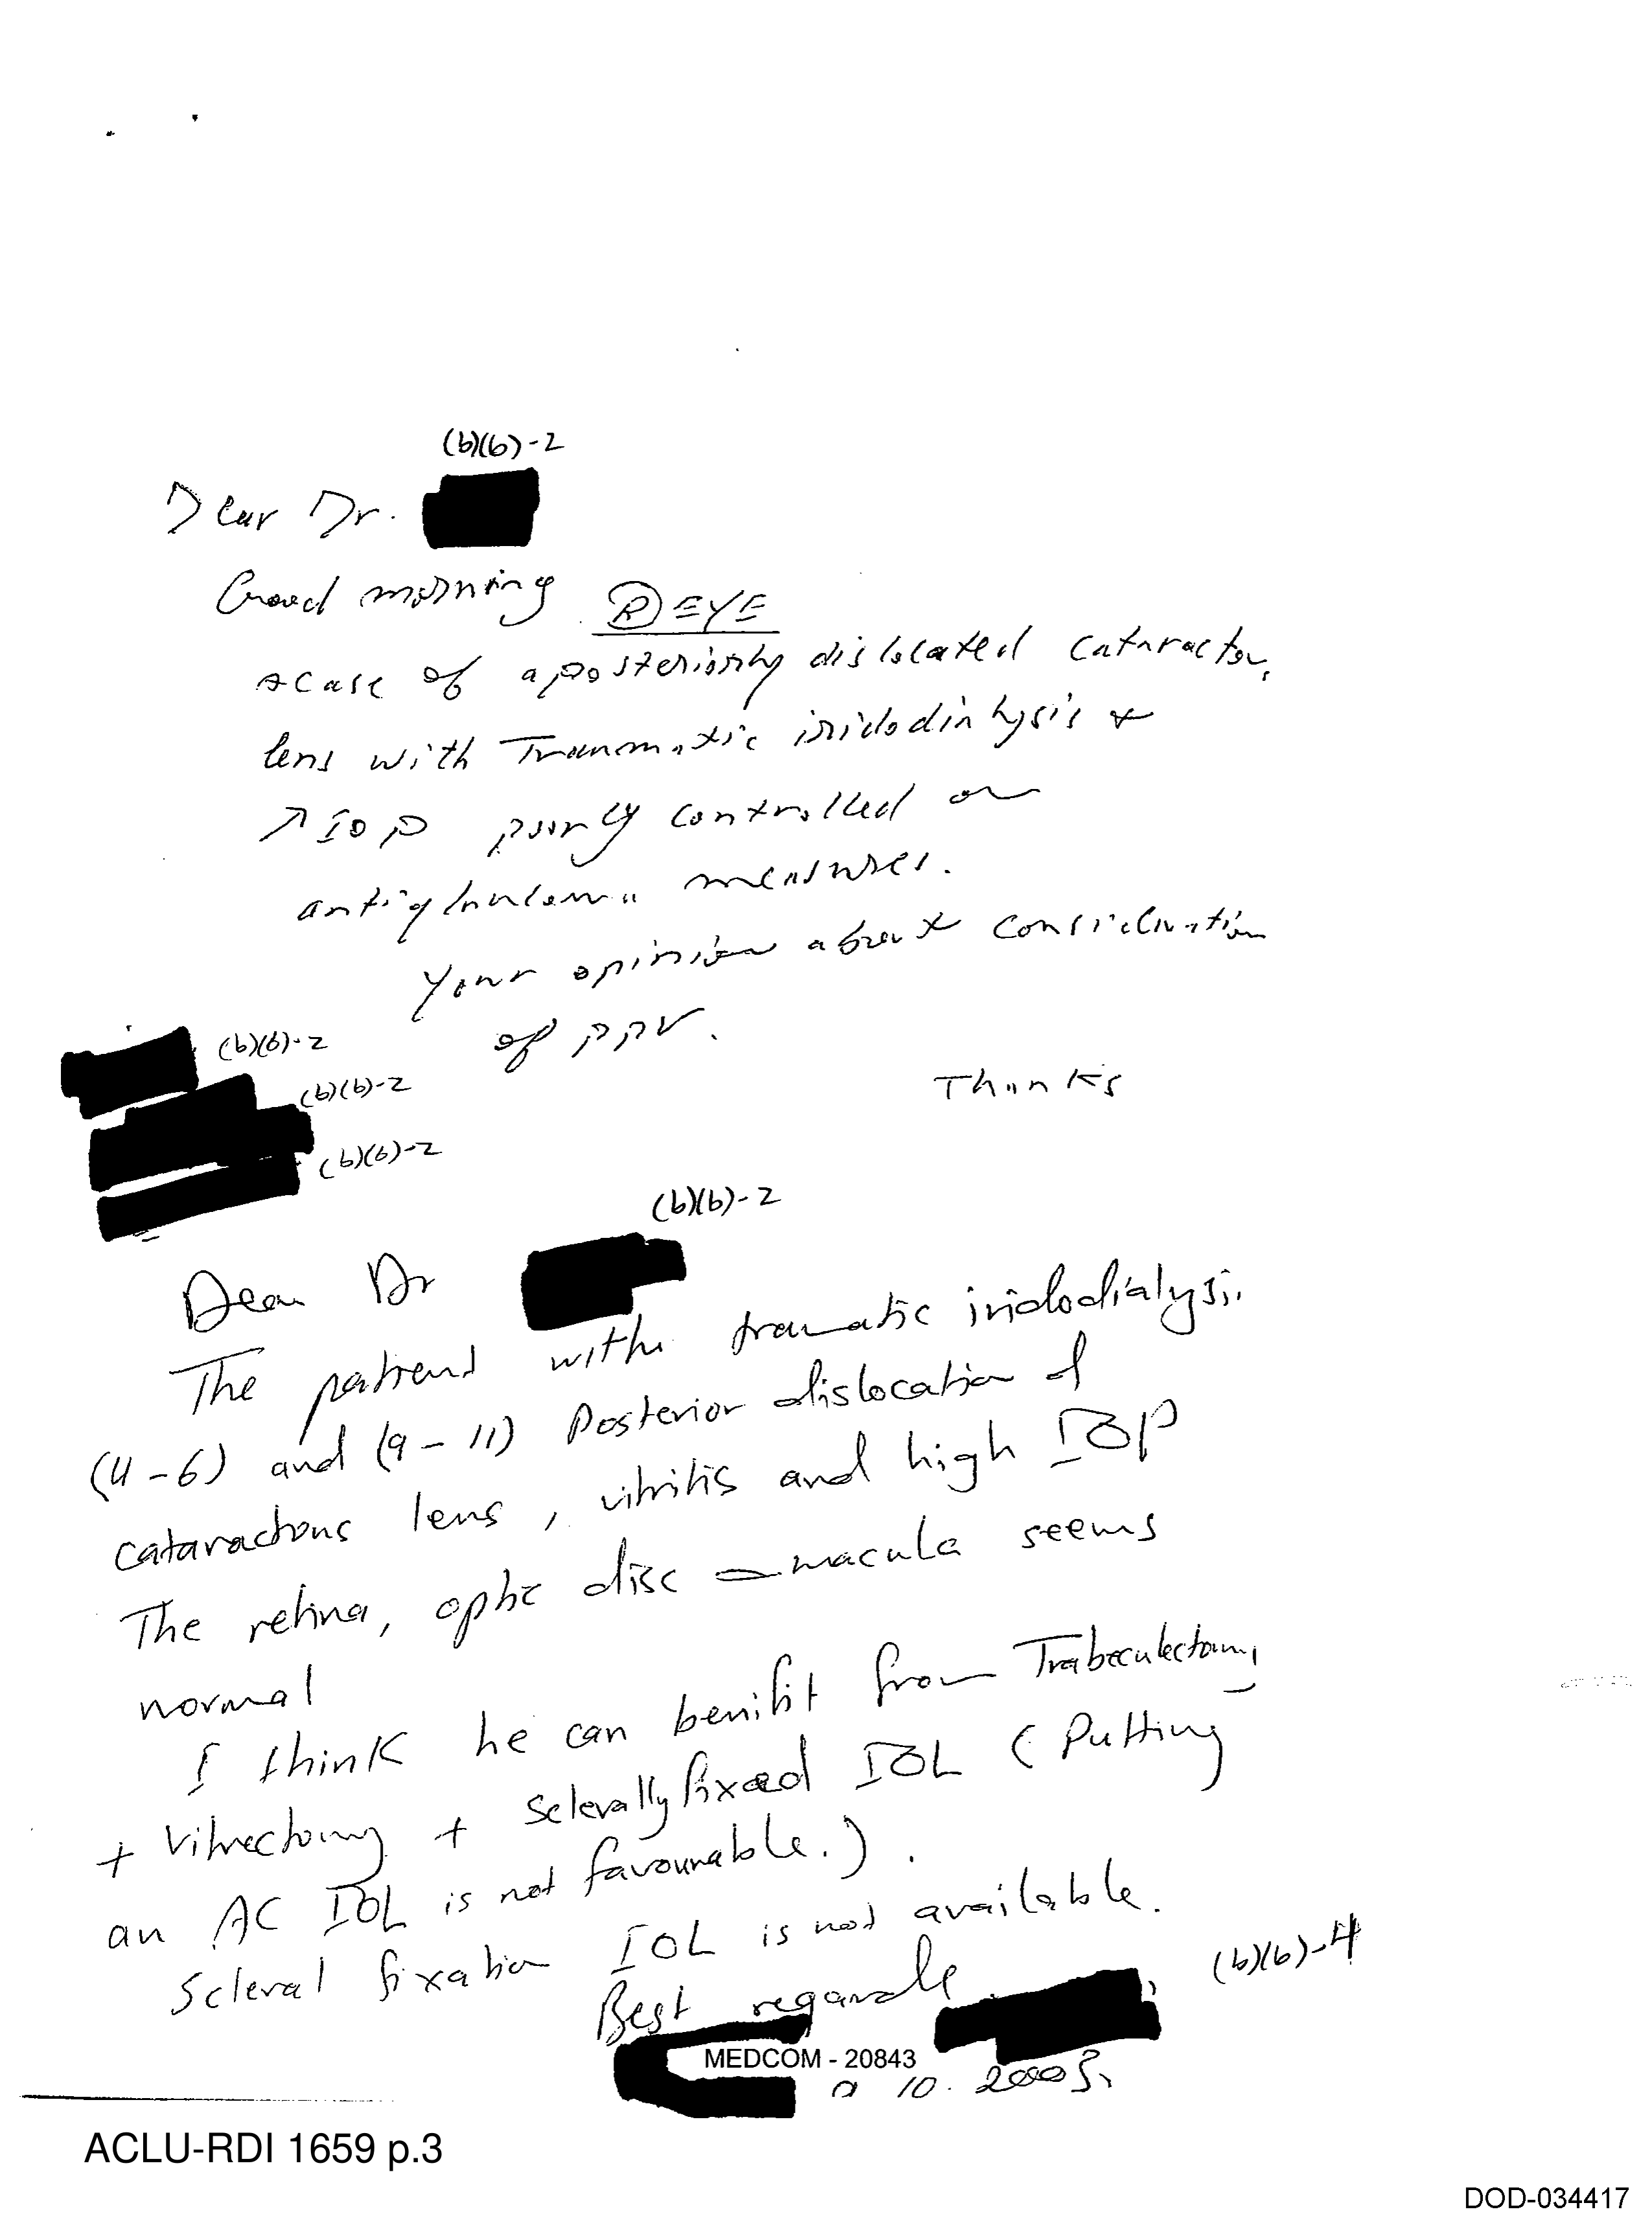 (b)(6)-2
Dear Dr.
Good morning
Ⓡ EYE
a case of a posteriorly dislocated cataractou.
lens with Traumatic iridodialysis &
↗ IOP poorly controlled on
antiglaucoma measures.
Your opinion about consideration
of PPV.
Thanks
(b)(6)-2
(b)(6)-2
(b)(6)-2
(b)(6)-2
Dear Dr
The patient with traumatic iridodialysis
(4-6) and (9-11) Posterior dislocation of
cataractous lens, vitritis and high IOP
The retina, optic disc macula seems
normal
I think he can benifit from Trabeculectomy
+ Vitrectomy + Sclerally fixed IOL (Putting
an AC IOL is not favourable.).
Scleral fixation IOL is not available.
Best regards
(b)(6)-4
MEDCOM - 20843
10. 2003
ACLU-RDI 1659 p.3
DOD-034417